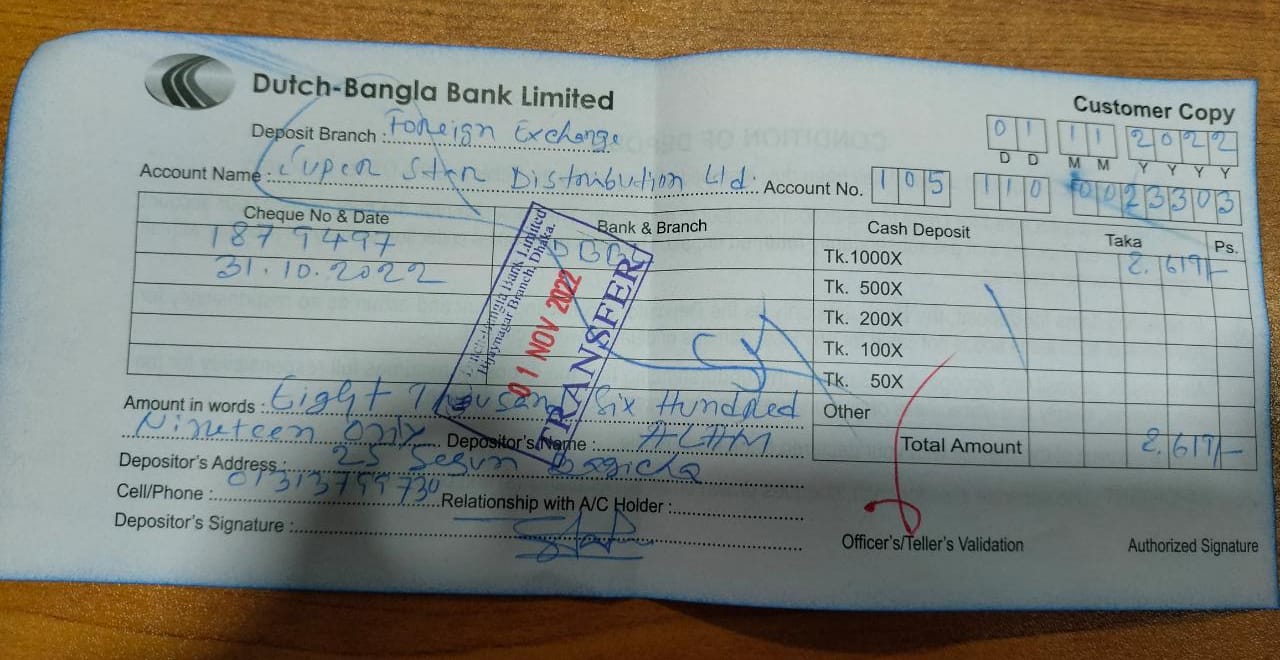 Dutch-Bangla Bank Limited
Customer Copy
Deposit Branch : Foreign Exchange
01 11 2022
D D M M Y Y Y Y
Account Name : Super Star Distribution Ltd. Account No. 105 110 0023303
Cheque No & Date Bank & Branch Cash Deposit Taka Ps.
1879497 DBBL Tk.1000X 8,619/-
31.10.2022 Tk. 500X
Tk. 200X
Tk. 100X
Tk. 50X
Dutch-Bangla Bank Limited
Bijaynagar Branch, Dhaka.
01 NOV 2022
TRANSFER
Amount in words : Eight Thousand Six Hundred Other
Nineteen only Depositor's Name : ALAM Total Amount 8,619/-
Depositor's Address : 25 Segun Bagicha
Cell/Phone : Relationship with A/C Holder :
Depositor's Signature : Officer's/Teller's Validation Authorized Signature